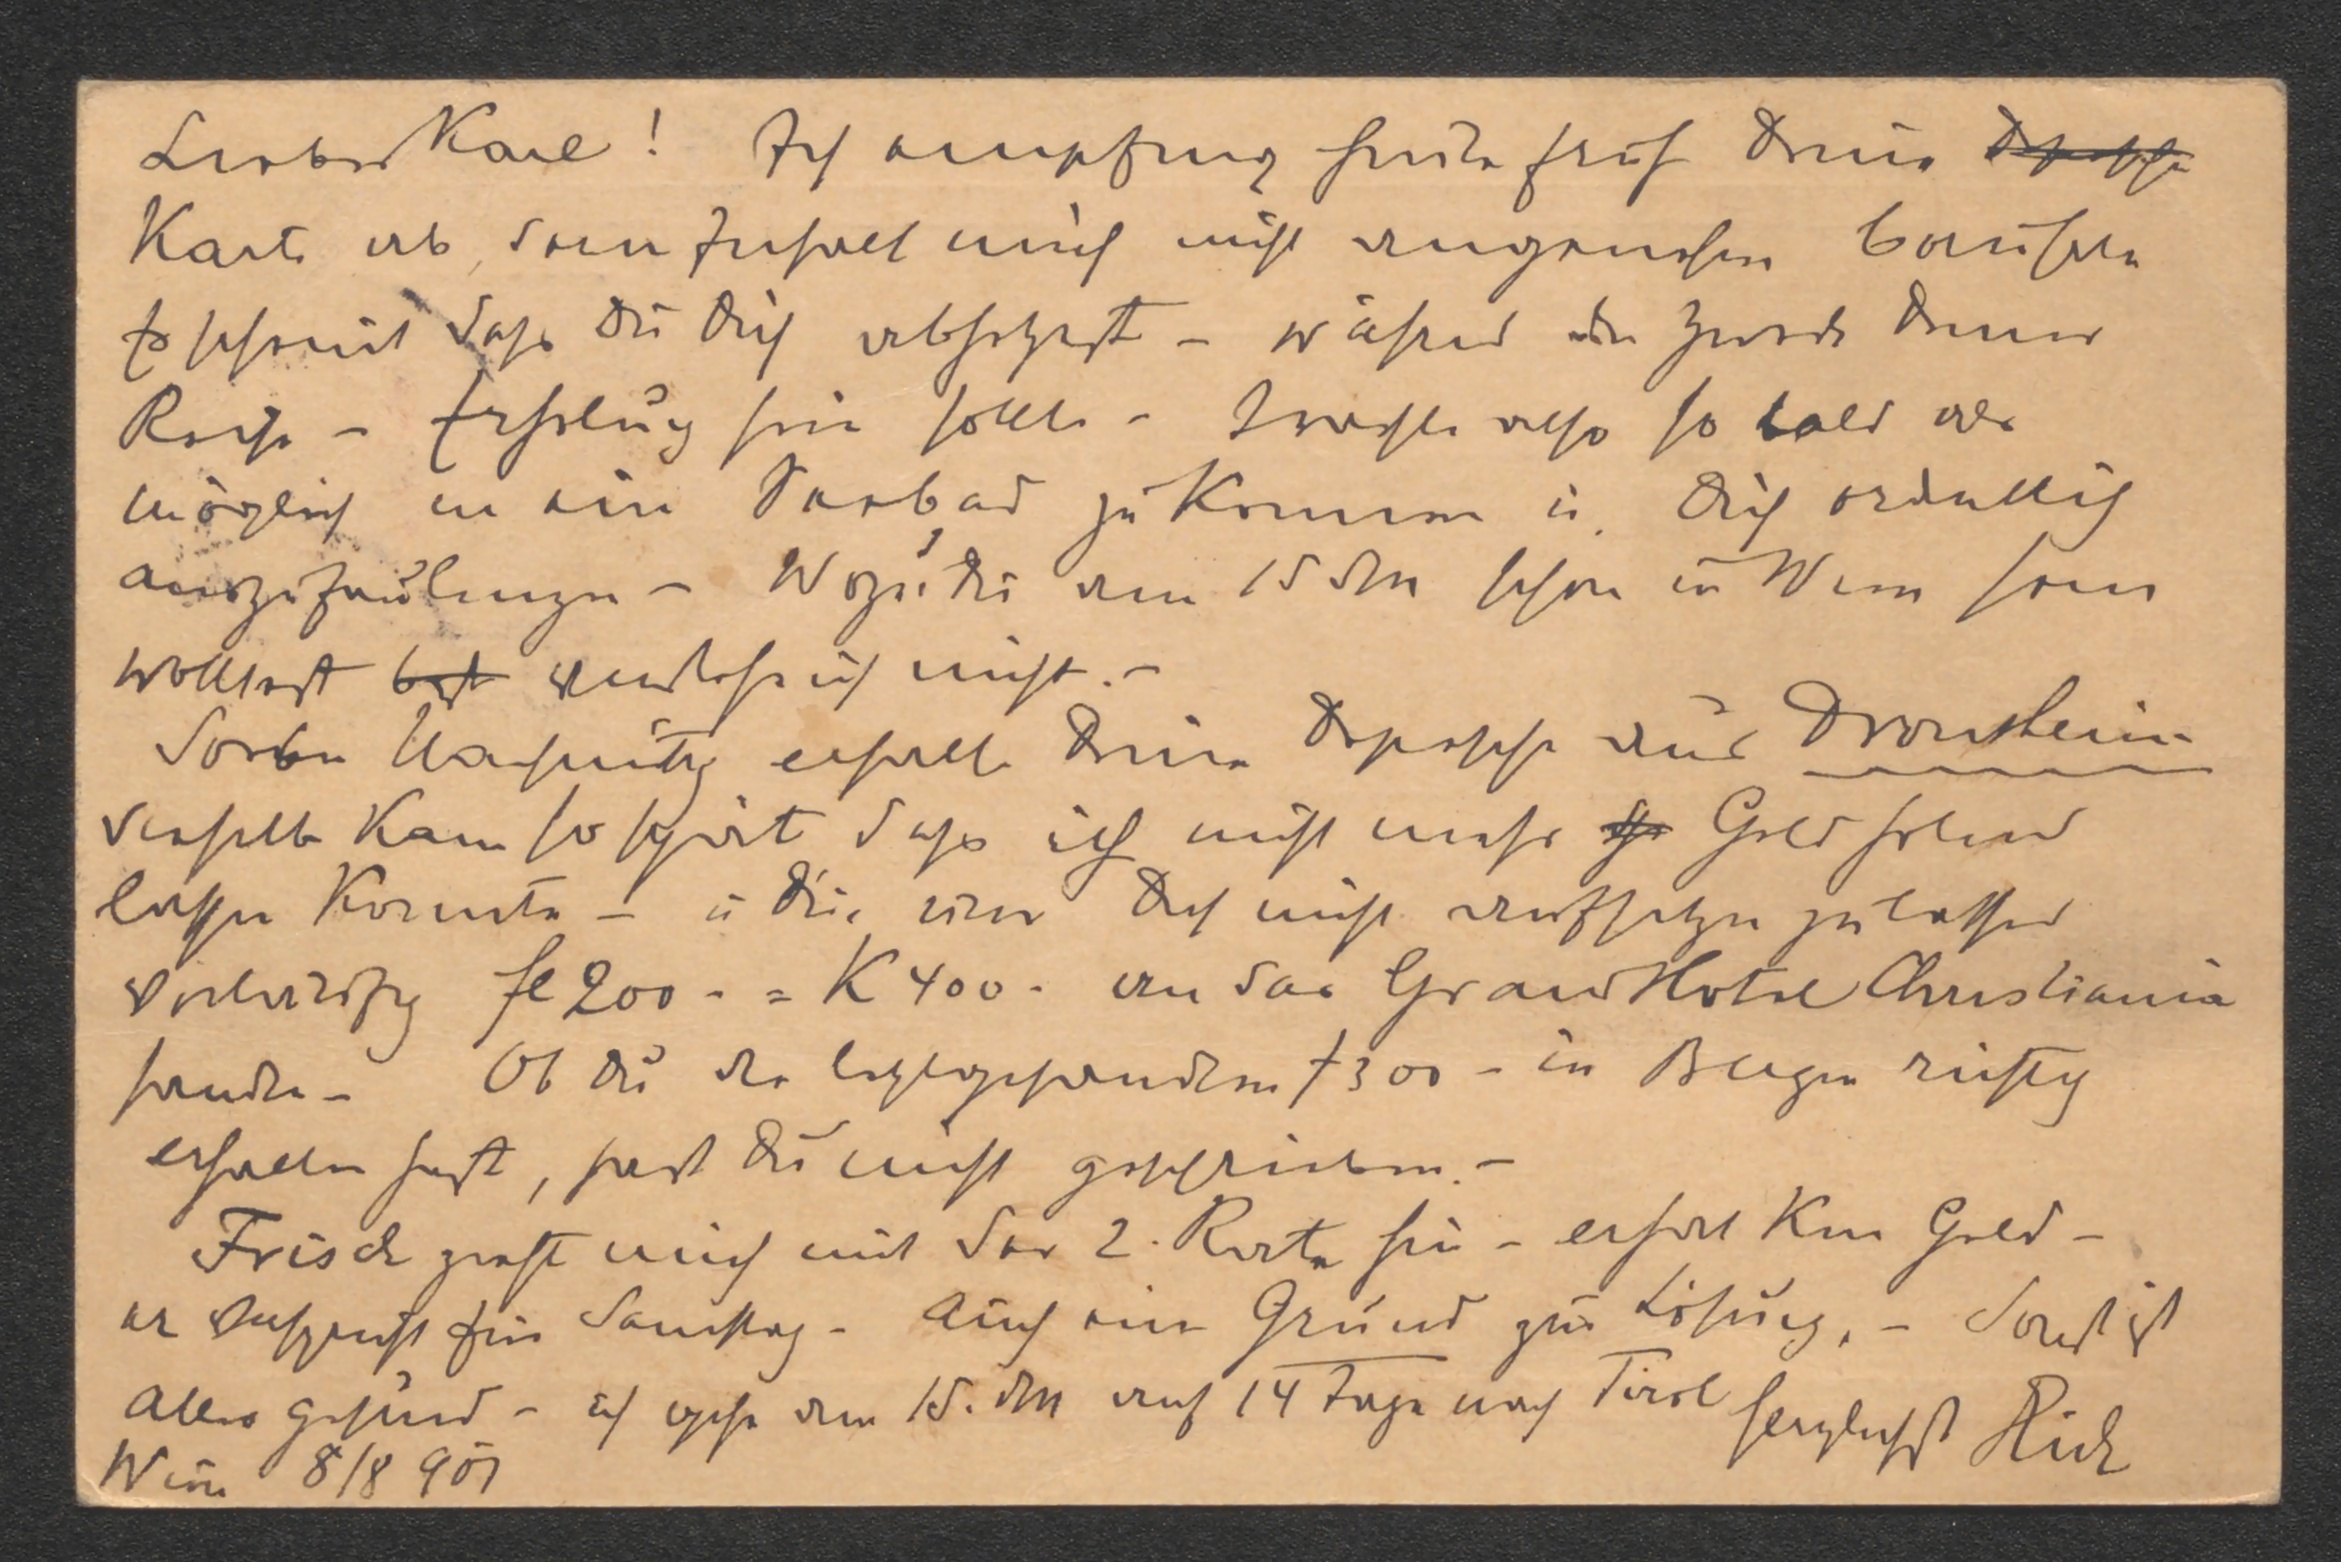 Lieber Karl! Ich empfing heute früh Deine Depesche
Karte ab, dern Inhalt mich nicht angenehm berührte
Es scheint daß Du Dich abhetzest – während der Zweck Deiner
Reise – Erholung sein sollte – Trachte also so bald als
möglich in ein Seebad zu kommen u. Dich ordentlich
auszufaulenzen – Wozu Du am 15 dM schon in Wien sein
wolltest verstehe ich nicht. –
Soeben Nachmittg erhalte Deine Depesche aus Drontheim
dieselbe kam so spät daß ich nicht mehr Geld holen
lassen konnte – u Dir, um Dich nicht aufsitzen zu lassen
vorläufig fl 200 – = K 400 – an das Grand Hotel Christiania
sende – Ob Du die letztgesandten f 300 – in Bergen richtig
erhalten hast, hast Du nicht geschrieben. –
Frisch zieht mich mit der 2. Rate hin – erhält kein Geld –
er verspricht für Samstag – Auch ein Grund zur Lösung. – Sonst ist
Alles gesund – ich gehe am 15. dM auf 14 Tage nach Tirol herzlichst Rich
Wien 8/8 901